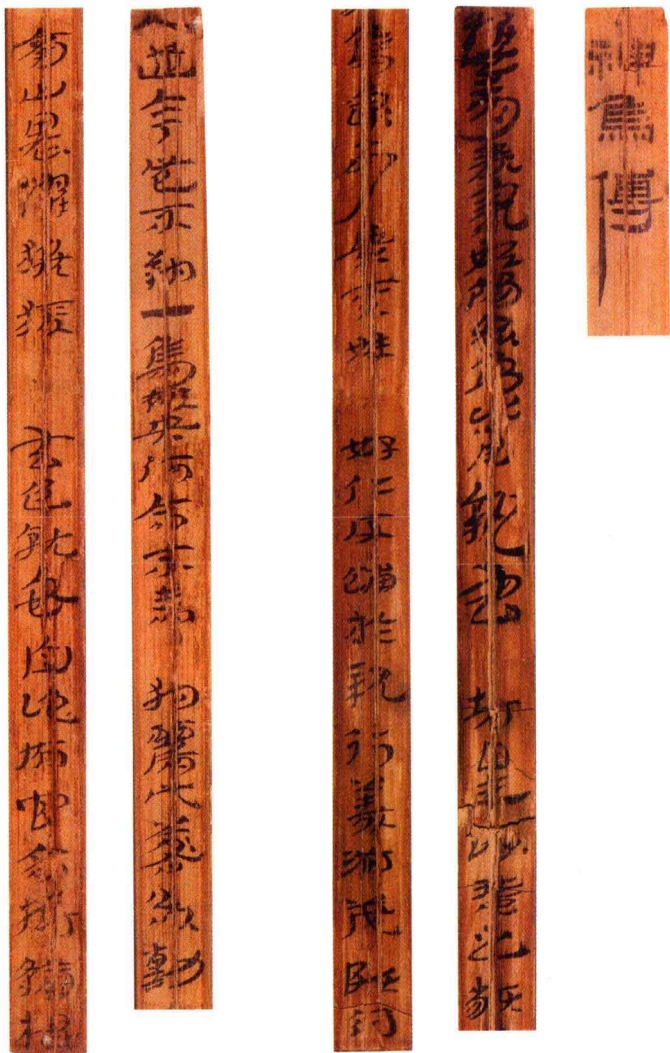 神烏傅
惟此三月春氣始陽衆鳥皆昌執虫坊皇蠉蜚之類
烏最可貴其姓好仁反餔於親行義淑茂頗得
人道今歲不翔一烏被央何命不壽狗麗此咎欲勳
南山畏懼猴猨去色就安自詫府官高樹綸棍